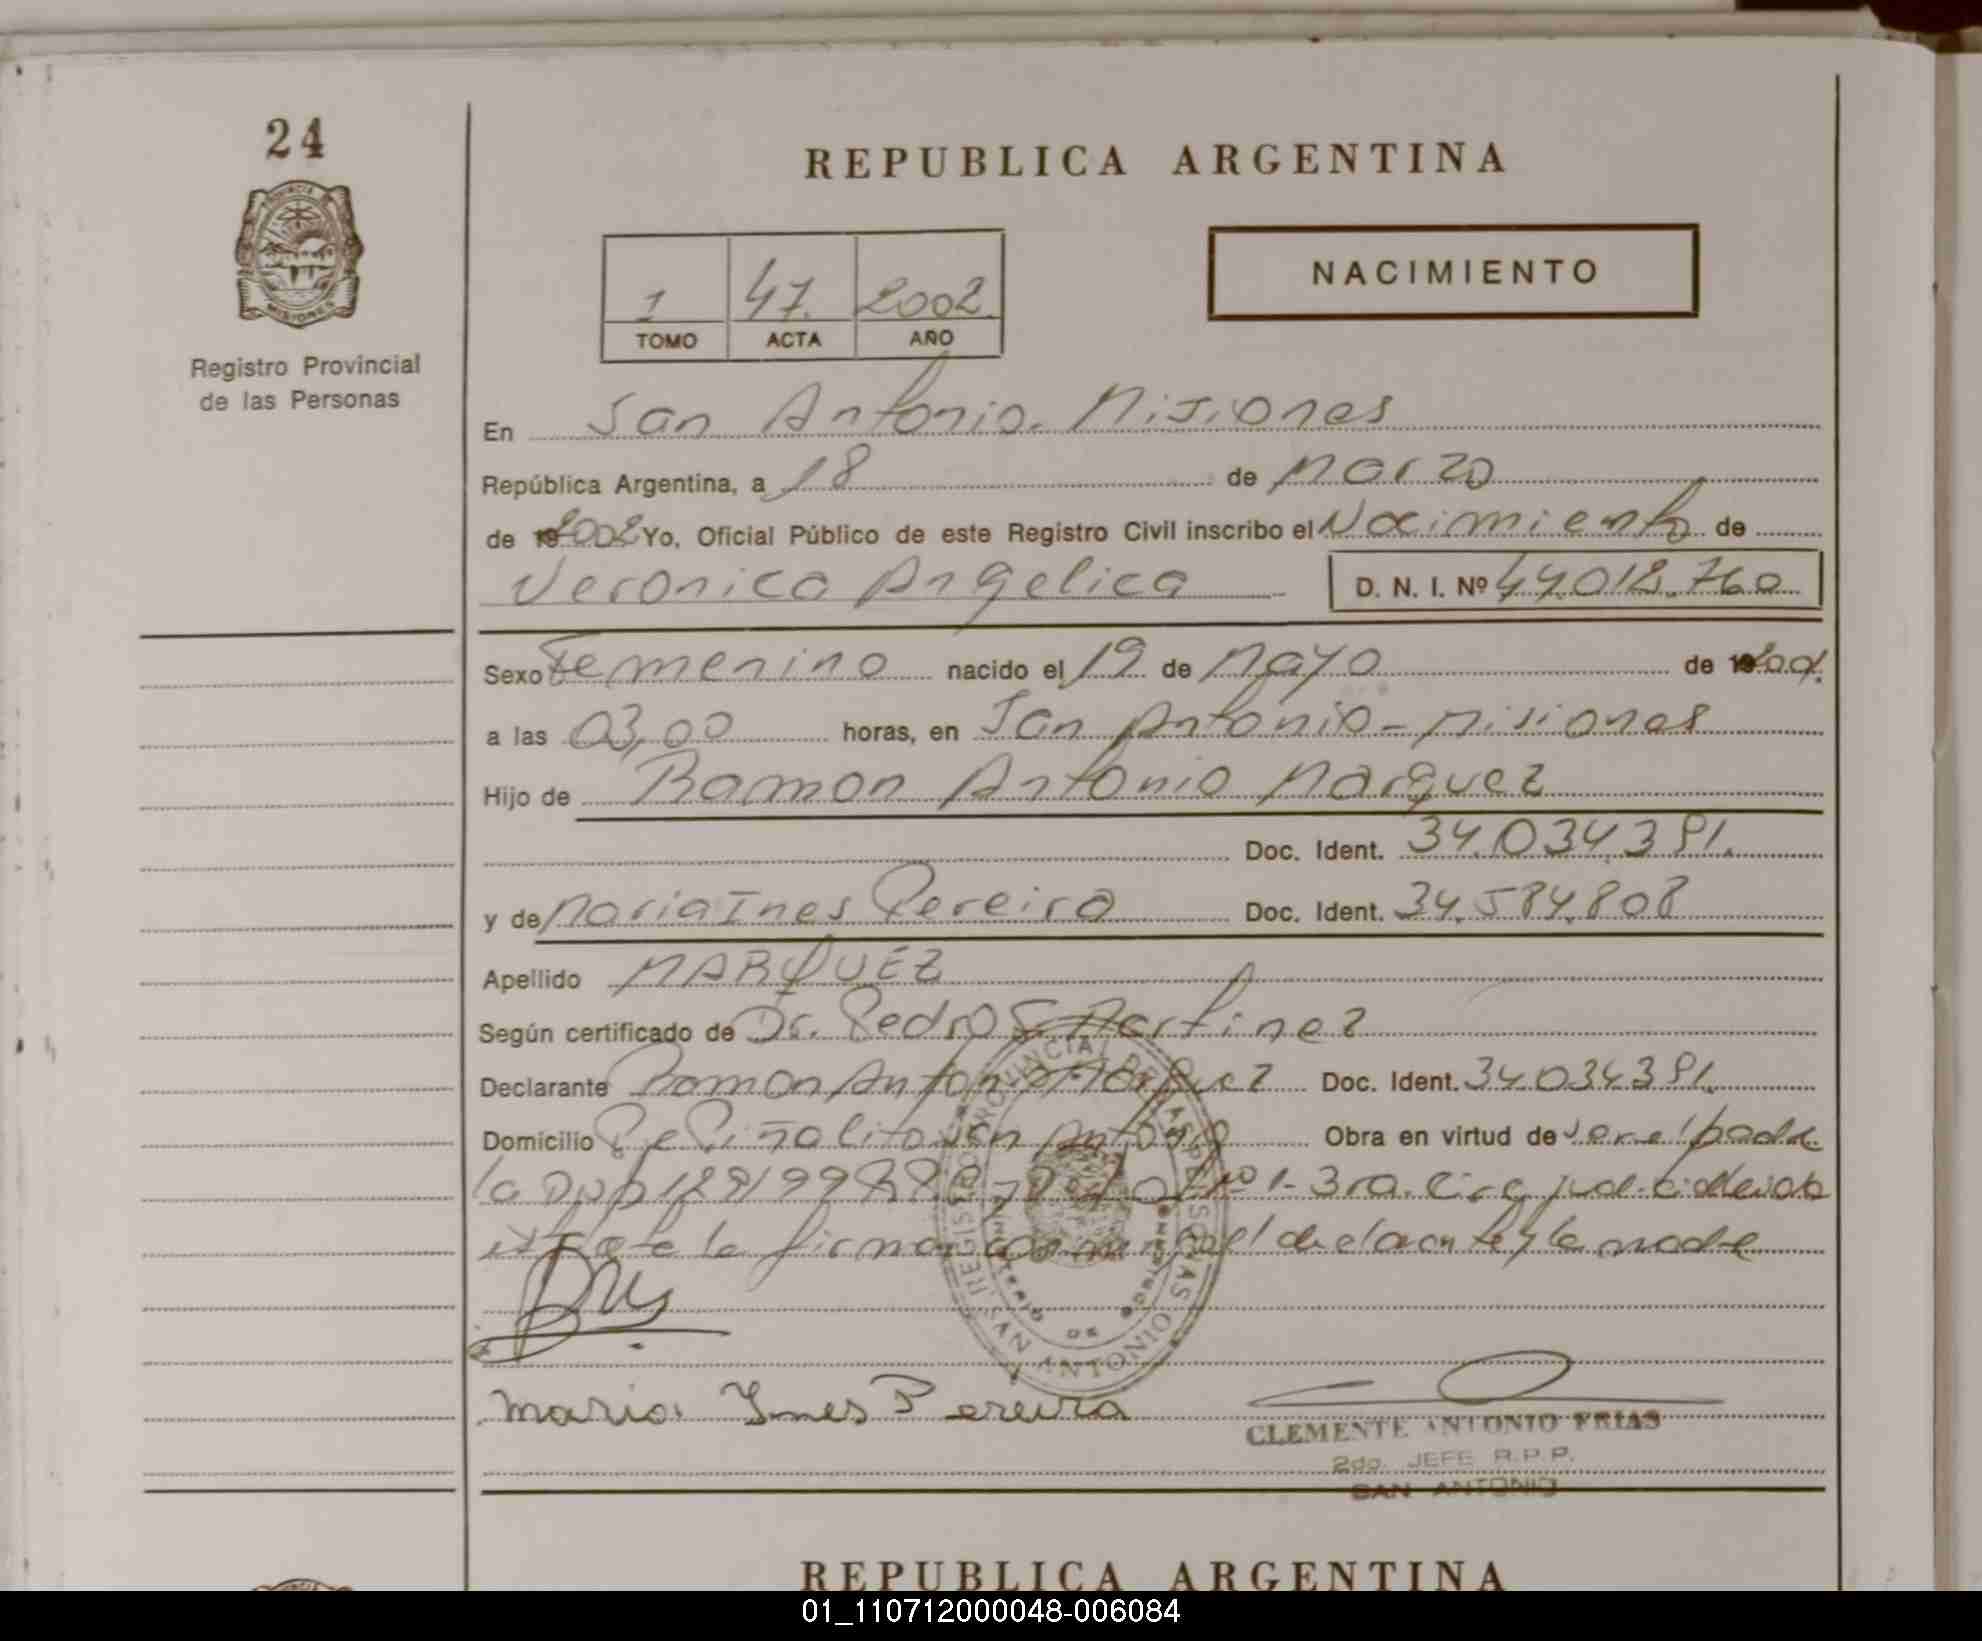 24
REPUBLICA ARGENTINA
PROVINCIA
MISIONES
Registro Provincial
de las Personas
1 47. 2002.
TOMO ACTA AÑO
NACIMIENTO
En San Antonio. Misiones
República Argentina, a 18 de Marzo
de 2002 Yo, Oficial Público de este Registro Civil inscribo el Nacimiento de
Veronica Angelica D. N. I. Nº 44.018.760
Sexo Femenino nacido el 19 de Mayo de
a las 03,00 horas, en San Antonio - Misiones
Hijo de Ramon Antonio Marquez
Doc. Ident. 34.034.391.
y de Maria Ines Pereira Doc. Ident. 34.584.808
Apellido MARQUEZ
Según certificado de Dr. Pedro Martinez
Declarante Ramon Antonio Marquez Doc. Ident. 34034391.
Domicilio San Antonio Obra en virtud de ser el padre
Nº 1- 3ra. Circ jud
la firma el declarante y la madre
REGISTRO PROVINCIAL DE LAS PERSONAS
MINISTERIO DE GOBIERNO
SAN ANTONIO
Maria Ynes Pereira
CLEMENTE ANTONIO FRIAS
2do. JEFE R.P.P.
SAN ANTONIO
REPUBLICA ARGENTINA
01_110712000048-006084